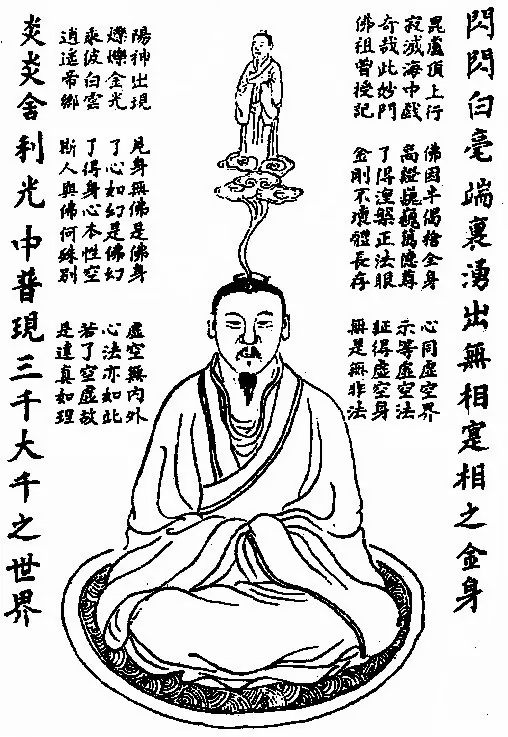 閃閃白毫端裏湧出無相寔相之金身
毘盧頂上行
寂滅海中戲
奇哉此妙門
佛祖曾授記
佛因半偈捨全身
高蹬巍巍萬德尊
了得涅槃正法眼
金剛不壞體長存
心同虛空界
示等虛空法
証得虛空身
無是無非法
陽神出現
爍爍金光
乘彼白雲
逍遙帝鄉
見身無佛是佛身
了心如幻是佛幻
了得身心本性空
斯人與佛何殊別
虛空無內外
心法亦如此
若了空虛故
是達真如理
炎炎舍利光中普現三千大千之世界